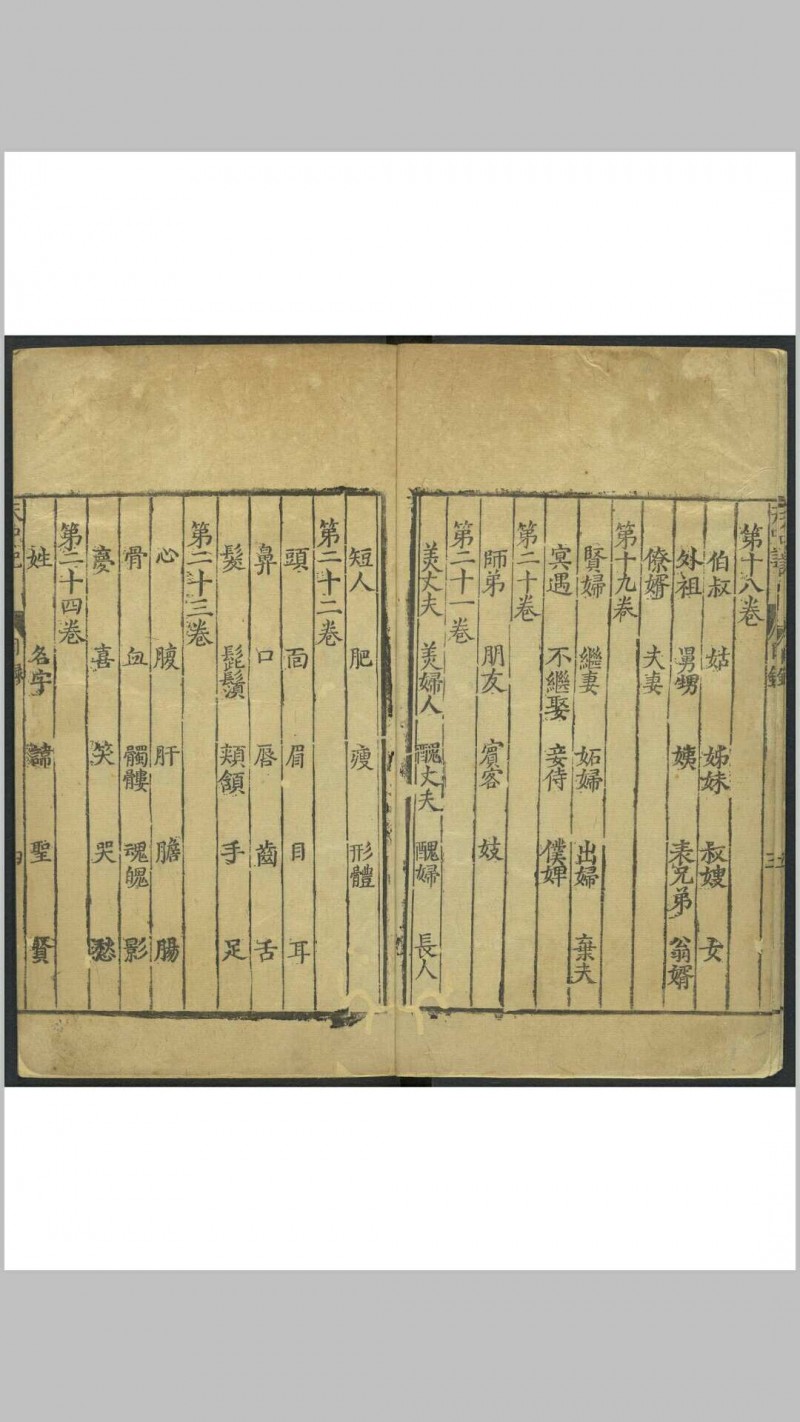 第十八卷
伯叔 姑 姊妹 叔嫂 女
外祖 舅甥 姨 表兄弟 翁婿
僚婿 夫妻
第十九卷
賢婦 繼妻 妬婦 出婦 棄夫
冥遇 不繼娶 妾侍 僕婢
第二十卷
師弟 朋友 賓客 妓
第二十一卷
美丈夫 美婦人 醜丈夫 醜婦 長人
短人 肥 瘦 形體
第二十二卷
頭 面 眉 目 耳
鼻 口 唇 齒 舌
髮 髭鬚 頰頷 手 足
第二十三卷
心 腹 肝 膽 腸
骨 血 髑髏 魂魄 影
夢 喜 笑 哭 愁
第二十四卷
姓 名字 諱 聖 賢